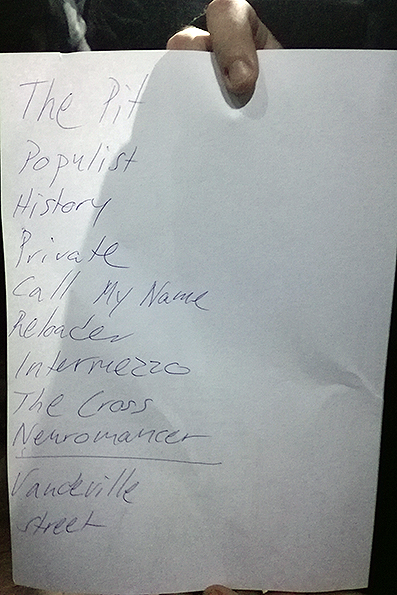 The Pit
Populist
History
Private
Call My Name
Reloader
Intermezzo
The Cross
Neuromancer
Vaudeville
street